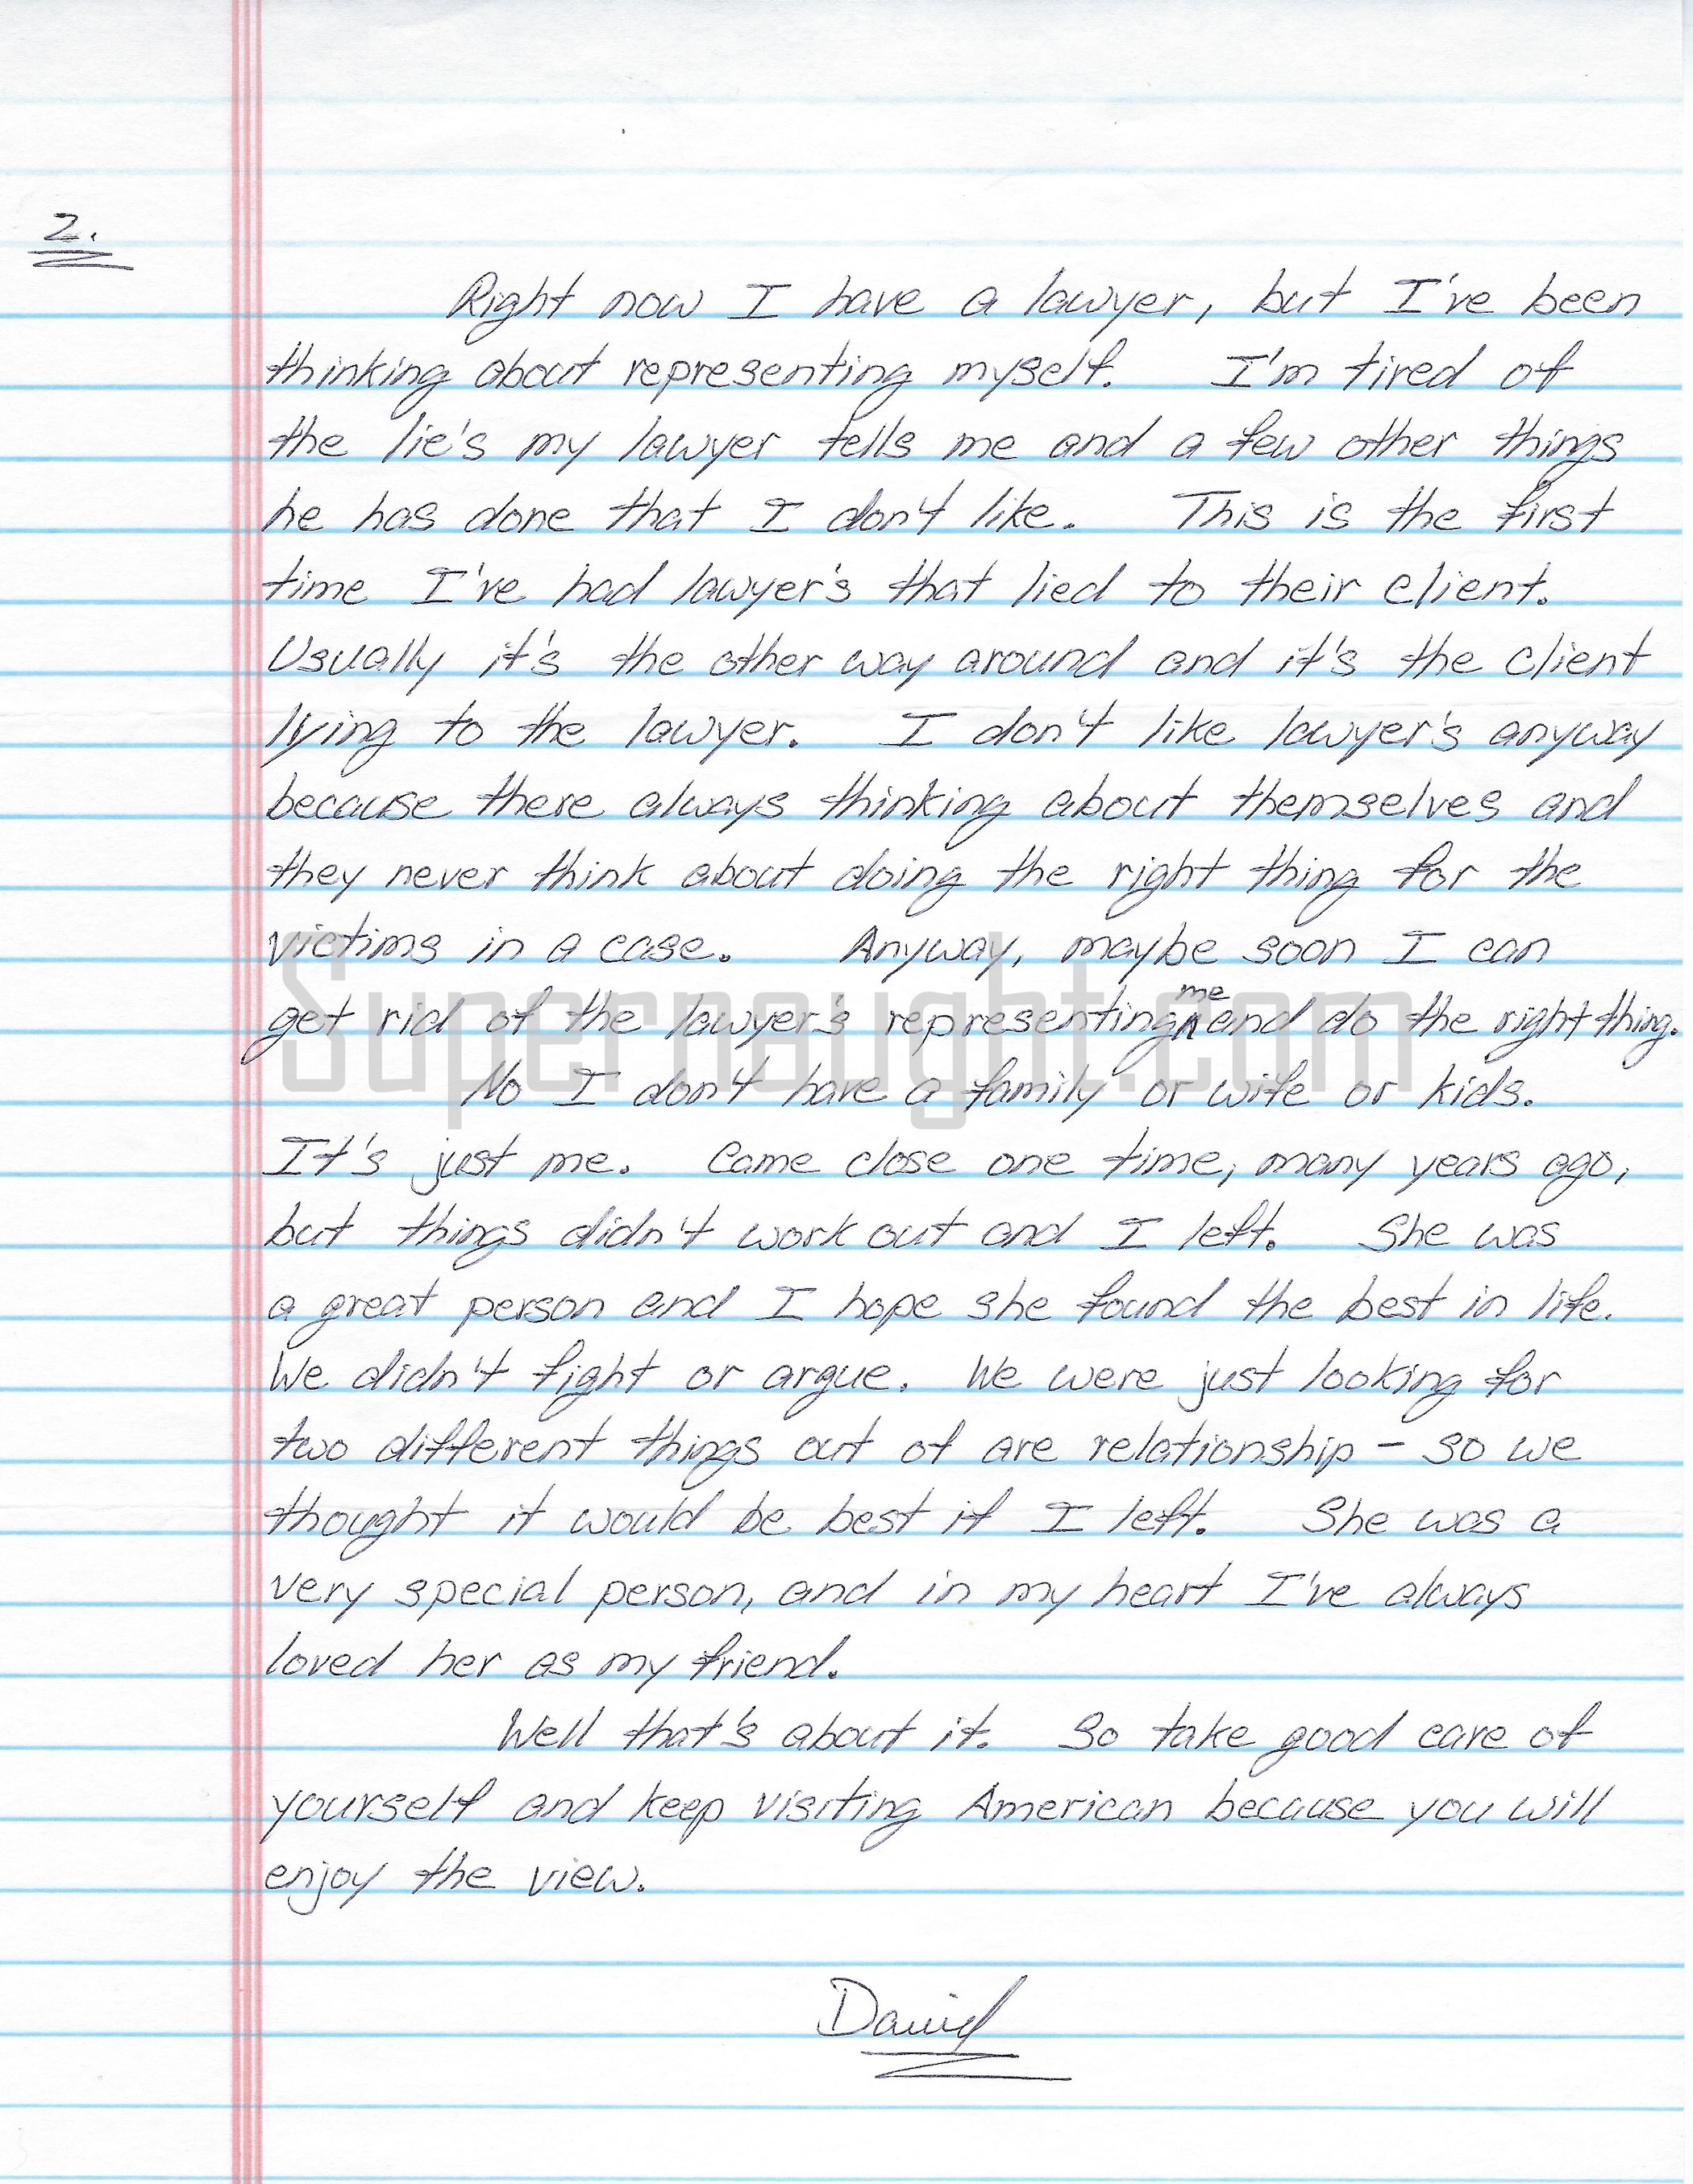 2.
Right now I have a lawyer, but I've been
thinking about representing myself. I'm tired of
the lie's my lawyer tells me and a few other things
he has done that I don't like. This is the first
time I've had lawyer's that lied to their client.
Usually it's the other way around and it's the client
lying to the lawyer. I don't like lawyer's anyway
because there always thinking about themselves and
they never think about doing the right thing for the
victims in a case. Anyway, maybe soon I can
get rid of the lawyer's representing me and do the right thing.
Supernaught.com
No I don't have a family or wife or kids.
It's just me. Came close one time, many years ago,
but things didn't work out and I left. She was
a great person and I hope she found the best in life.
We didn't fight or argue. We were just looking for
two different things out of are relationship - so we
thought it would be best if I left. She was a
very special person, and in my heart I've always
loved her as my friend.
Well that's about it. So take good care of
yourself and keep visiting American because you will
enjoy the view.
David